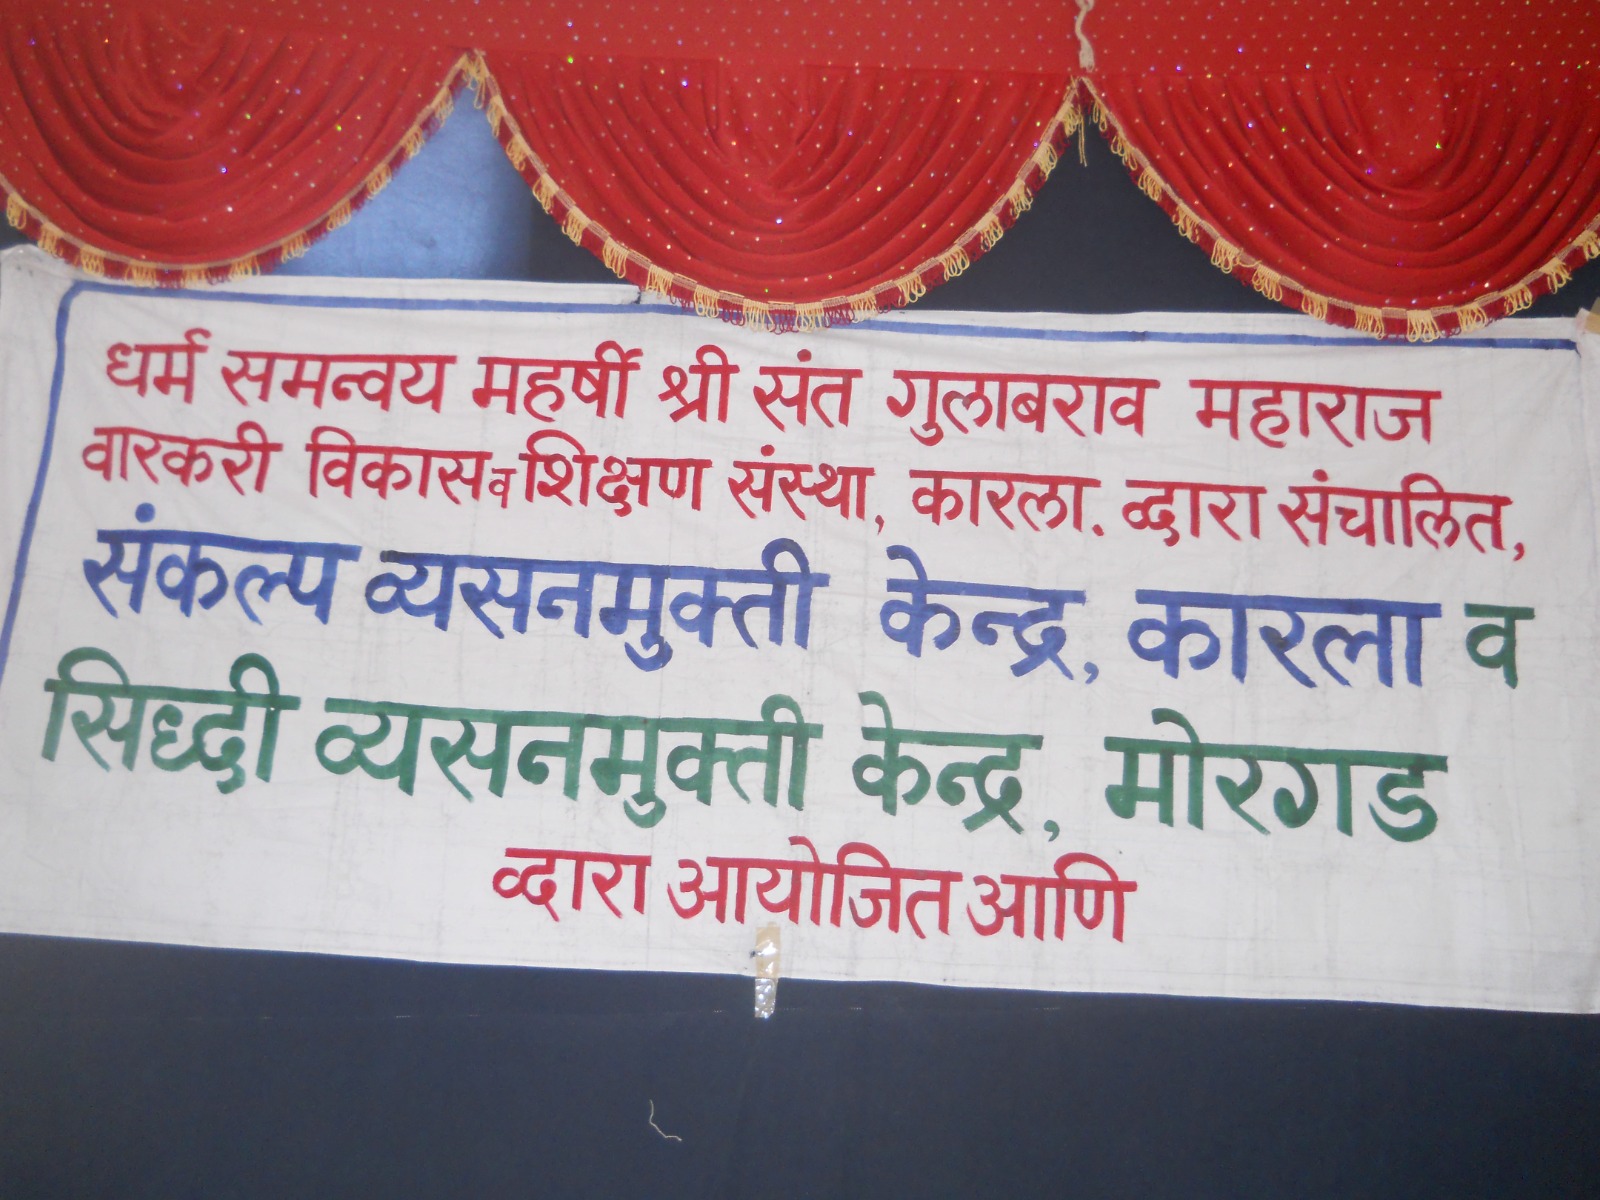 धर्म समन्वय महर्षी श्री संत गुलाबराव महाराज
वारकरी विकास व शिक्षण संस्था, कारला. द्वारा संचालित,
संकल्प व्यसनमुक्ती केन्द्र, कारला व
सिध्दी व्यसनमुक्ती केन्द्र, मोरगड
द्वारा आयोजित आणि